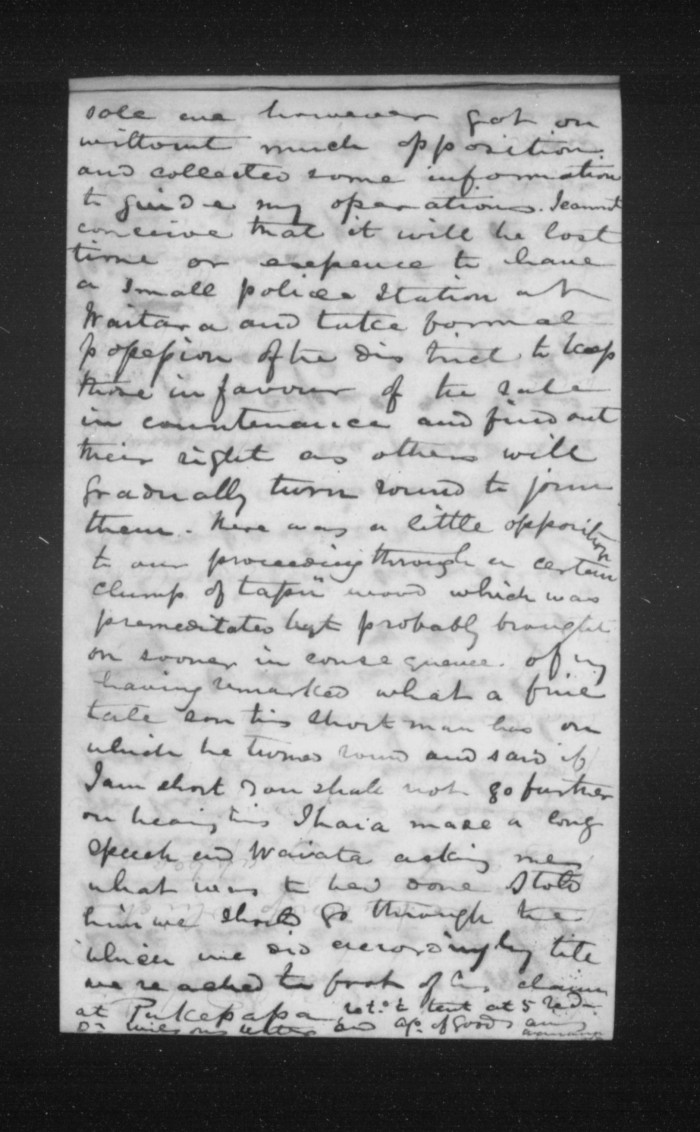 sale we however got on
without much opposition
and collected some information
to guide my operations. I cannot
conceive that it will be lost
time or expence to have
a small police station at
Waitara and take formal
possession of the district to keep
those in favour of the sale
in countenance and find out
their right as others will
gradually turn round to join
them. There was a little opposition
to our proceeding through a certain
clump of tapu wood which was
premeditated but probably brought
on sooner in consequence of my
having remarked what a fine
tale son this short man has on
which he turned round and said if
I am short you shall not go further
on hearing this Ihaia made a long
speech and Waiata asking me
what was to be done I told
him we should go through
which we did accordingly till
we reached the of his claim
at Pukepapa ret.d to tent at 5
and of Goods and